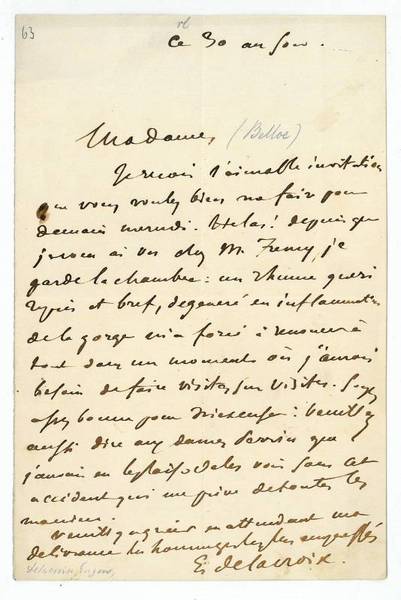 63
ce 30 au soir.
Madame, (Belloc)
Je reçois l'aimable invitation
que vous voulez bien me faire pour
demain mercredi. Hélas! depuis que
je vous ai vue chez M. je
garde la chambre: un rhume guéri
repris et bref, dégénéré en inflammation
de la gorge m'a forcé à renoncer à
tout dans un moment où j'aurais
besoin de faire visites sur visites. Soyez
assez bonne pour m'excuser: veuillez
aussi dire aux dames que
j'aurais eu le plaisir de les voir sans cet
accident qui me prive de toutes les
manières.
veuillez agréer en attendant ma
délivrance les hommages les plus empressés
E. delacroix.